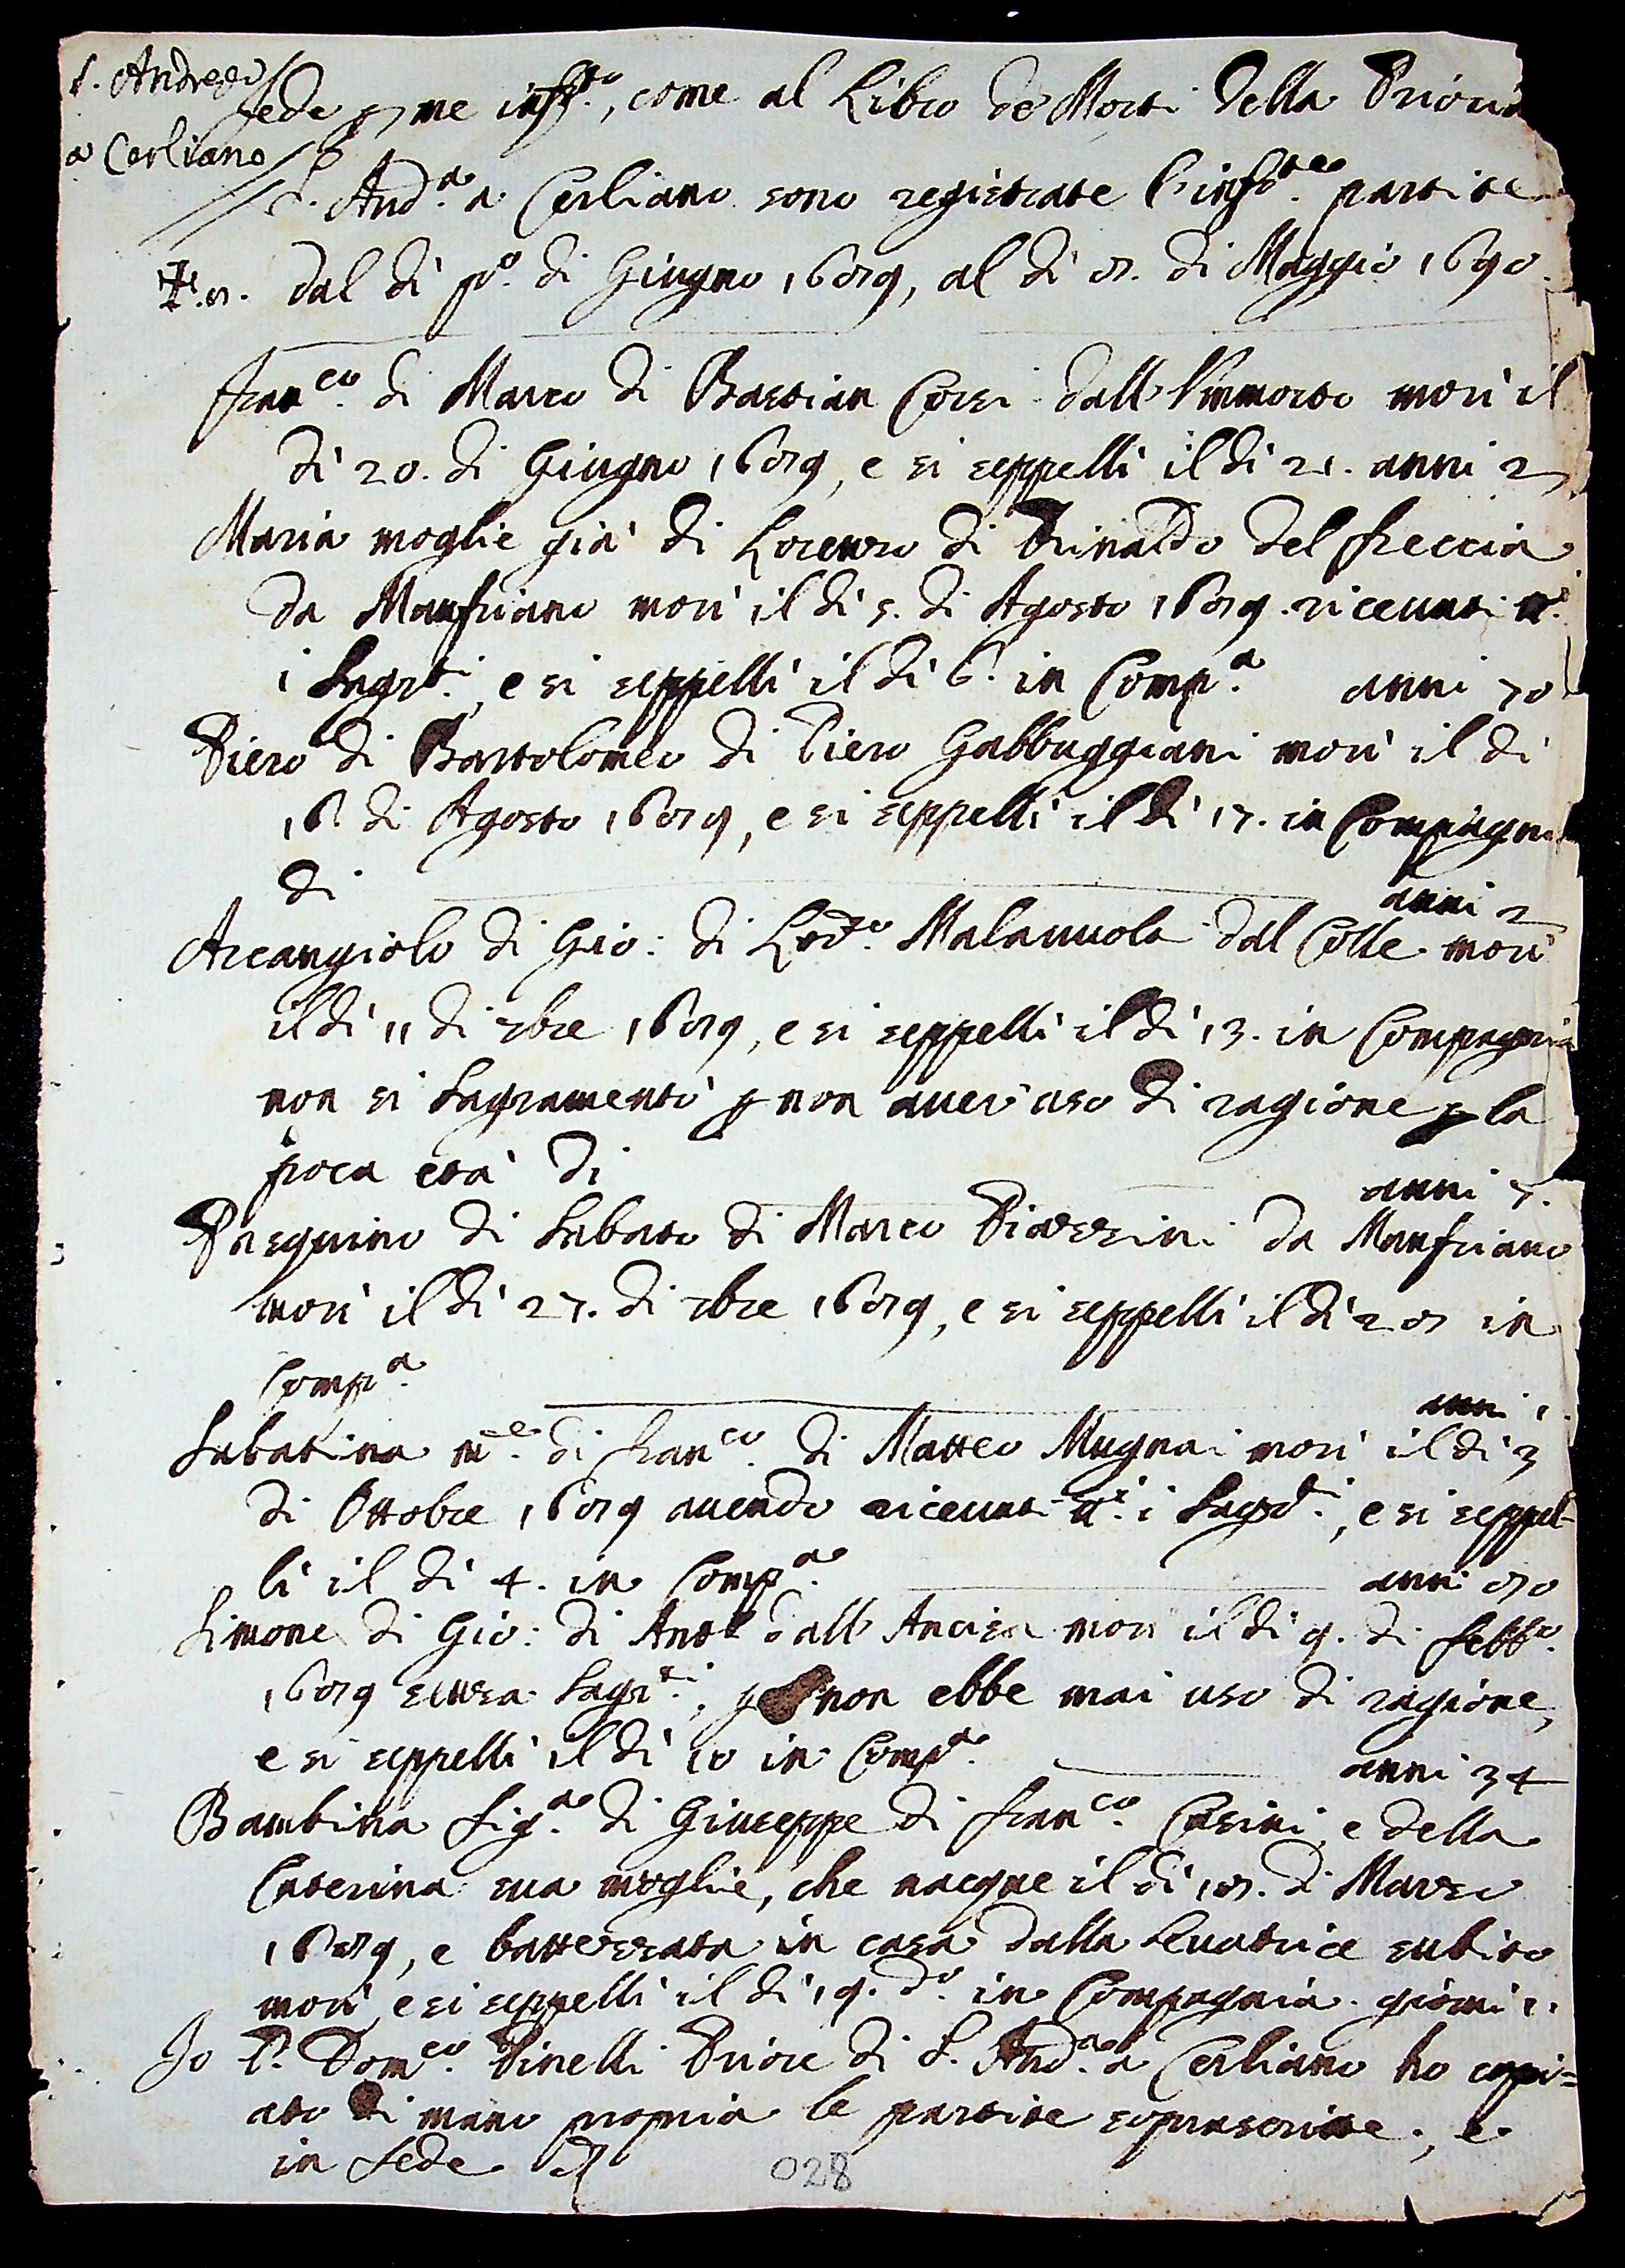 S. Andrea
a Cerliano
Fede p me infr.to, come al Libro de Morti della Prioria
S. And.a a Cerliano sono registrate l'infr.te partite
n. 8. dal dì p.o di Giugno 1689, al dì 8. di Maggio 1690.
Fran.co di Marco di Bastian Corsi dall' morì il
dì 20. di Giugno 1689, e si seppellì il dì 21. anni 2
Maria moglie già di Lorenzo di Rinaldo del Freccia
da Manfriano morì il dì 5. di Agosto 1689. ricevuti t.i
i Sagr.ti, e si seppellì il dì 6. in Comp.a anni 70
Piero di Bartolomeo di Piero Gabbuggiani morì il dì
16. di Agosto 1689, e si seppellì il dì 17. in Compagnia
di anni 2
Arcangiolo di Gio: di Lod.o Malanuola dal Colle morì
il dì 11 di 7bre 1689, e si seppellì il dì 13. in Compagnia
non si Sagramentò p non aver uso di ragione p la
poca età di anni 7.
Pasquino di Sabato di Marco Piazzini da Manfriano
morì il dì 27. di 7bre 1689, e si seppellì il dì 28 in
Comp.a anni 1.
Sabatina m.e di Fran.co di Matteo Mugnai morì il dì 3
di Ottobre 1689 avendo ricevuti t.i i Sagr.ti, e si seppel-
lì il dì 4. in Comp.a anni 80
Simone di Gio: di Ant.o dall' Ancisa morì il dì 9. di Febb.o
1689 senza Sagr.ti, p non ebbe mai uso di ragione,
e si seppellì il dì 10 in Comp.a anni 34
Bambina fig.a di Giuseppe di Fran.co Casini e della
Caterina sua moglie, che nacque il dì 18. di Marzo
1689, e battezzata in casa dalla Levatrice subito
morì, e si seppellì il dì 19. d.o in Compagnia. giorni 1.
Io P. Dom.co Pinelli Priore di S. And.a a Cerliano ho copi=
ato di mano propria le partite soprascritte, e
in fede
028